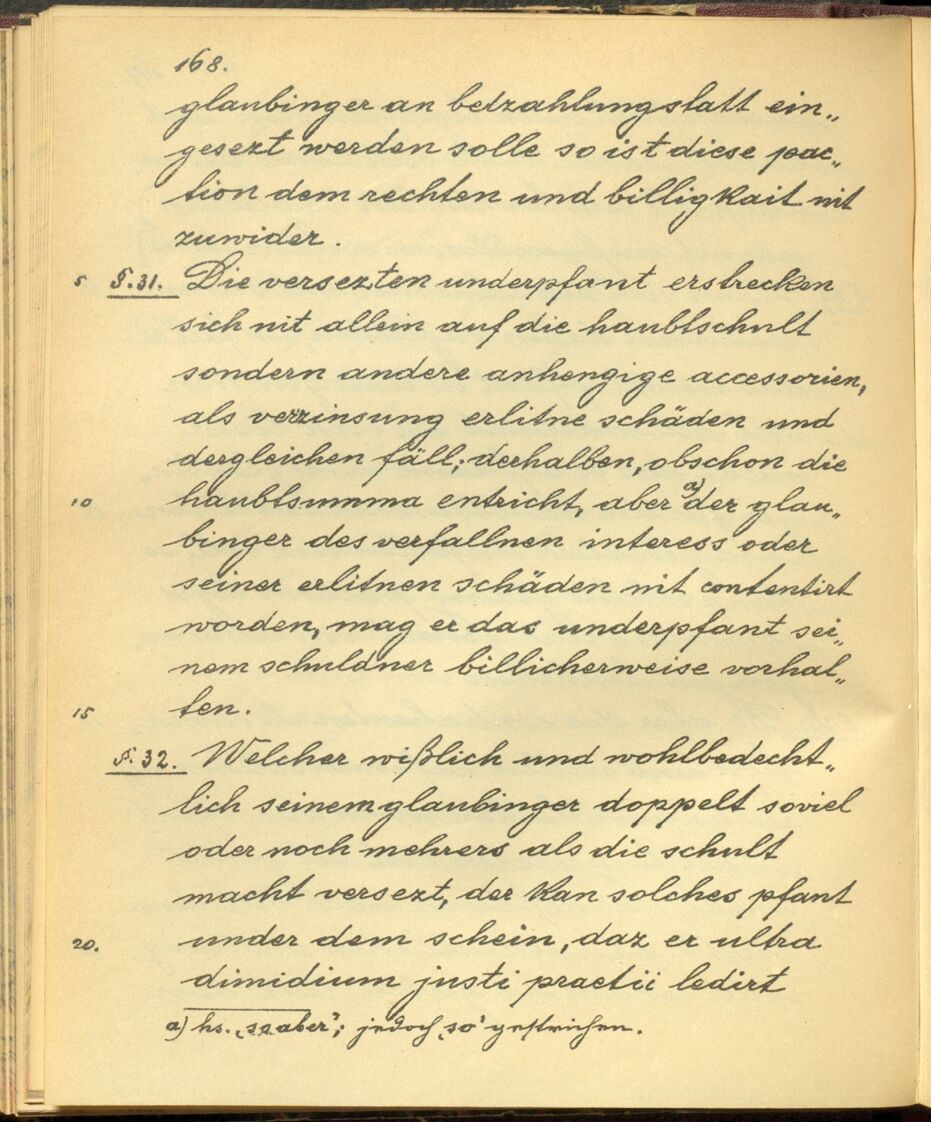 168.
glaubinger an betzahlungstatt ein„
gesezt werden solle so ist diese pac„
tion dem rechten und billigkait nit
zuwider.
5 §.31. Die versezten underpfant erstrecken
sich nit allein auf die haubtschult
sondern andere anhengige accessorien,
als verzinsung erlitne schäden und
dergleichen fäll; derhalben, obschon die
10 haubtsumma entricht, aber a) der glau„
binger des verfallnen interess oder
seiner erlitnen schäden nit contentirt
worden, mag er das underpfant sei„
nem schuldner billicherweise vorhal„
15 ten.
§. 32. Welcher wißlich und wohlbedecht„
lich seinem glaubinger doppelt soviel
oder noch mehrers als die schult
macht versezt, der kan solches pfant
20. under dem schein, daz er ultra
dimidium justi practii ledirt
a) hs. „so aber"; jedoch „so" gestrichen.